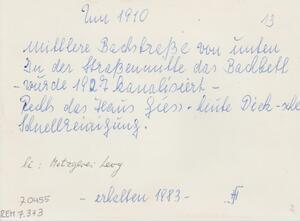 Um 1910
13
Mittlere Bachstraße von unten
In der Straßenmitte das Bachbett
- wurde 1927 kanalisiert -
Rechts das Haus Giess - heute Dick -
Schnellreinigung.
li: Metzgerei Levy
70455
REM 7.373
- erhalten 1983 -
2